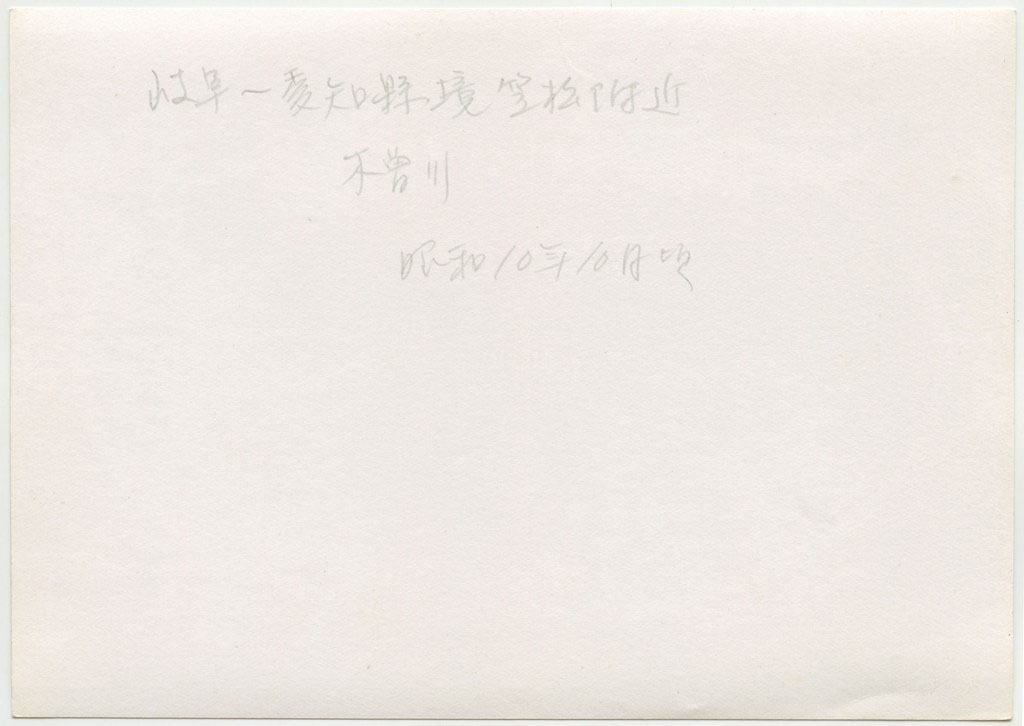 岐阜〜愛知縣境笠松附近
木曽川
昭和10年10月頃